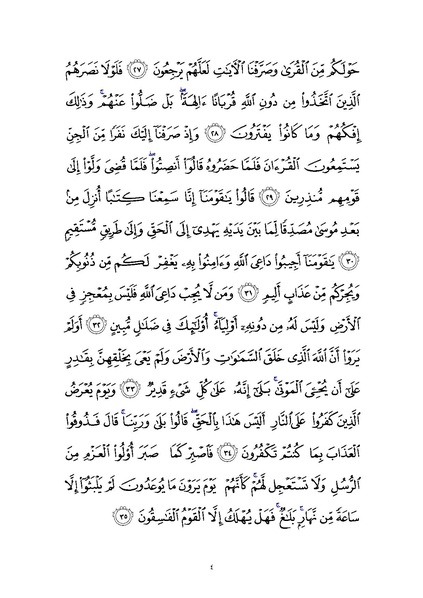 حَوْلَكُم مِّنَ ٱلْقُرَىٰ وَصَرَّفْنَا ٱلْءَايَـٰتِ لَعَلَّهُمْ يَرْجِعُونَ ﴿٢٧﴾ فَلَوْلَا نَصَرَهُمُ
ٱلَّذِينَ ٱتَّخَذُوا۟ مِن دُونِ ٱللَّهِ قُرْبَانًا ءَالِهَةًۢ ۖ بَلْ ضَلُّوا۟ عَنْهُمْ ۚ وَذَٰلِكَ
إِفْكُهُمْ وَمَا كَانُوا۟ يَفْتَرُونَ ﴿٢٨﴾ وَإِذْ صَرَفْنَآ إِلَيْكَ نَفَرًا مِّنَ ٱلْجِنِّ
يَسْتَمِعُونَ ٱلْقُرْءَانَ فَلَمَّا حَضَرُوهُ قَالُوٓا۟ أَنصِتُوا۟ ۖ فَلَمَّا قُضِىَ وَلَّوْا۟ إِلَىٰ
قَوْمِهِم مُّنذِرِينَ ﴿٢٩﴾ قَالُوا۟ يَـٰقَوْمَنَآ إِنَّا سَمِعْنَا كِتَـٰبًا أُنزِلَ مِنۢ
بَعْدِ مُوسَىٰ مُصَدِّقًا لِّمَا بَيْنَ يَدَيْهِ يَهْدِىٓ إِلَى ٱلْحَقِّ وَإِلَىٰ طَرِيقٍ مُّسْتَقِيمٍ
﴿٣٠﴾ يَـٰقَوْمَنَآ أَجِيبُوا۟ دَاعِىَ ٱللَّهِ وَءَامِنُوا۟ بِهِۦ يَغْفِرْ لَكُم مِّن ذُنُوبِكُمْ
وَيُجِرْكُم مِّنْ عَذَابٍ أَلِيمٍ ﴿٣١﴾ وَمَن لَّا يُجِبْ دَاعِىَ ٱللَّهِ فَلَيْسَ بِمُعْجِزٍ فِى
ٱلْأَرْضِ وَلَيْسَ لَهُۥ مِن دُونِهِۦٓ أَوْلِيَآءُ ۚ أُو۟لَـٰٓئِكَ فِى ضَلَـٰلٍ مُّبِينٍ ﴿٣٢﴾ أَوَلَمْ
يَرَوْا۟ أَنَّ ٱللَّهَ ٱلَّذِى خَلَقَ ٱلسَّمَـٰوَٰتِ وَٱلْأَرْضَ وَلَمْ يَعْىَ بِخَلْقِهِنَّ بِقَـٰدِرٍ
عَلَىٰٓ أَن يُحْـِۧىَ ٱلْمَوْتَىٰ ۚ بَلَىٰٓ إِنَّهُۥ عَلَىٰ كُلِّ شَىْءٍ قَدِيرٌ ﴿٣٣﴾ وَيَوْمَ يُعْرَضُ
ٱلَّذِينَ كَفَرُوا۟ عَلَى ٱلنَّارِ أَلَيْسَ هَـٰذَا بِٱلْحَقِّ ۖ قَالُوا۟ بَلَىٰ وَرَبِّنَا ۚ قَالَ فَذُوقُوا۟
ٱلْعَذَابَ بِمَا كُنتُمْ تَكْفُرُونَ ﴿٣٤﴾ فَٱصْبِرْ كَمَا صَبَرَ أُو۟لُوا۟ ٱلْعَزْمِ مِنَ
ٱلرُّسُلِ وَلَا تَسْتَعْجِل لَّهُمْ ۚ كَأَنَّهُمْ يَوْمَ يَرَوْنَ مَا يُوعَدُونَ لَمْ يَلْبَثُوٓا۟ إِلَّا
سَاعَةً مِّن نَّهَارٍۭ ۚ بَلَـٰغٌ ۚ فَهَلْ يُهْلَكُ إِلَّا ٱلْقَوْمُ ٱلْفَـٰسِقُونَ ﴿٣٥﴾
٤